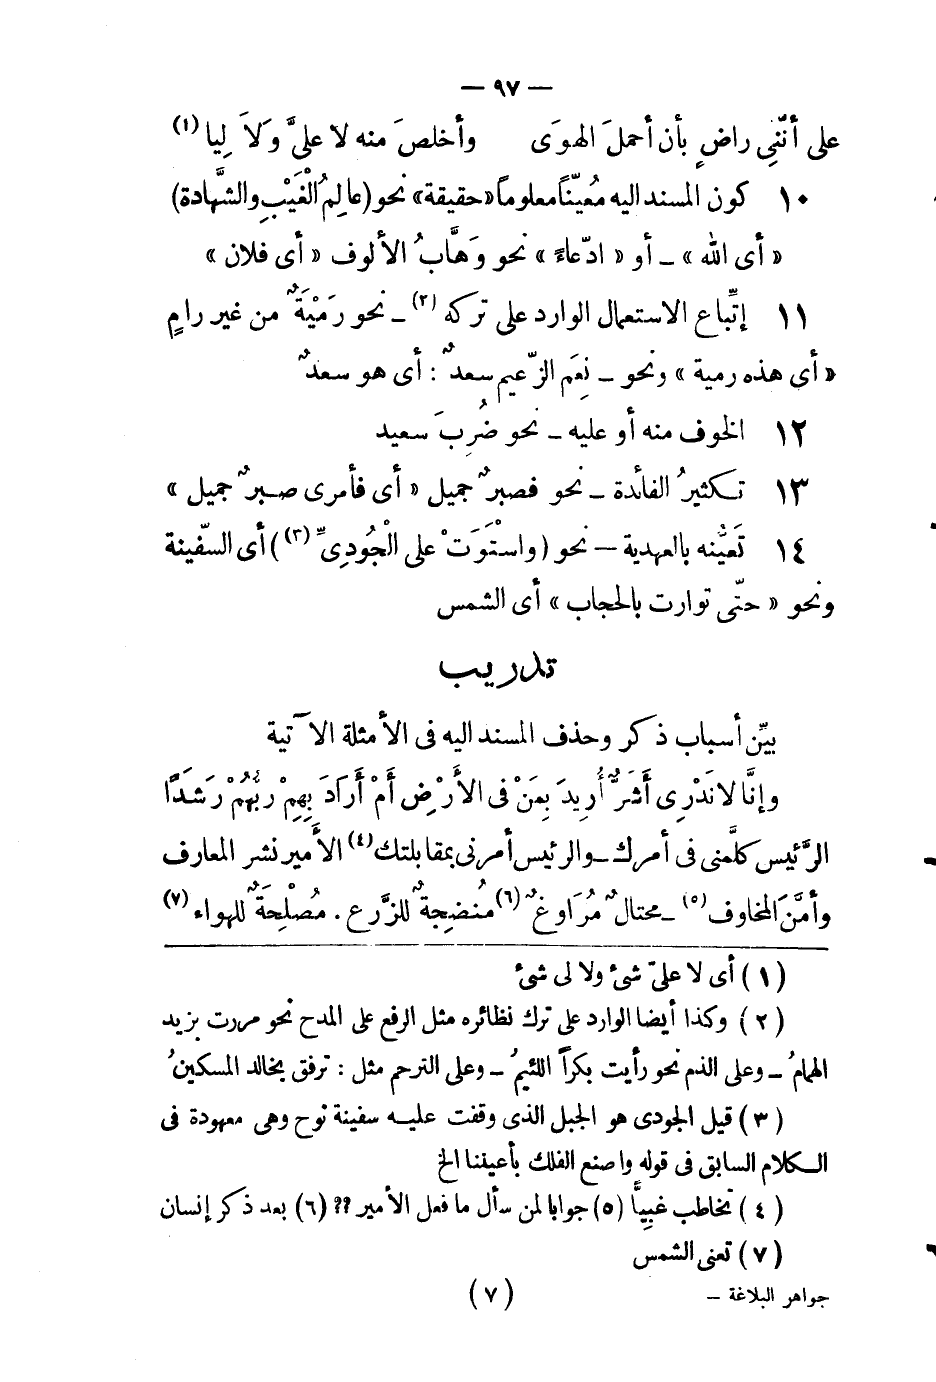 — ٩٧ —
على أنَّنِى راضٍ بأن أحملَ الهوَى وأخلصَ منه لا علىَّ وَلاَ لِيا (١)
١٠ كون المسند اليه مُعيّناً معلوماً «حقيقة» نحو (عالِمُ الْغَيْبِ والشَّهادة)
« أى الله » ــ أو « ادّعاءً » نحو وَهَّابُ الألوف « أى فلان »
١١ إتِّباع الاستعمال الوارد على تركه (٢) ــ نحو رَمْيَةٌ من غير رامٍ
« أى هذه رمية » ونحو ــ نِعَم الزّعيم سعدٌ : أى هو سعدٌ
١٢ الخوف منه أو عليه ــ نحو ضُرِبَ سعيد
١٣ تكثيرُ الفائدة ــ نحو فصبرٌ جميل « أى فأمرى صبرٌ جميل »
١٤ تَعَيُّنه بالعهدية — نحو (واسْتَوَتْ على الْجُودِىِّ (٣)) أى السّفينة
ونحو « حتّى توارت بالحجاب » أى الشمس
تدريب
بيِّن أسباب ذكر وحذف المسند اليه فى الأمثلة الآتية
وإنَّا لا نَدْرِى أَشَرٌّ أُرِيدَ بِمَنْ فى الأَرْضِ أَمْ أَرَادَ بِهِمْ رَبُّهُمْ رَشَدًا
الرَّئيس كلَّمنى فى أمرك ــ والرئيس أمرنى بمقابلتك (٤) الأَمير نشر المعارف
وأَمَّنَ المخاوف (٥) ــ محتالٌ مُرَاوغٌ (٦) مُنضِجةٌ للزَّرع . مُصْلِحَةٌ للهواء (٧)
(١) أى لا علىّ شئ ولا لى شئ
(٢) وكذا أيضا الوارد على ترك نظائره مثل الرفع على المدح نحو مررت بزيد
الهمامُ ــ وعلى الذم نحو رأيت بكراً اللئيمُ ــ وعلى الترحم مثل : ترفق بخالد المسكينُ
(٣) قيل الجودى هو الجبل الذى وقفت عليه سفينة نوح وهى معهودة فى
الكلام السابق فى قوله واصنع الفلك بأعيننا الخ
(٤) تخاطب غبيًّا (٥) جوابا لمن سأل ما فعل الأمير ?? (٦) بعد ذكر إنسان
(٧) تعنى الشمس
جواهر البلاغة – (٧)